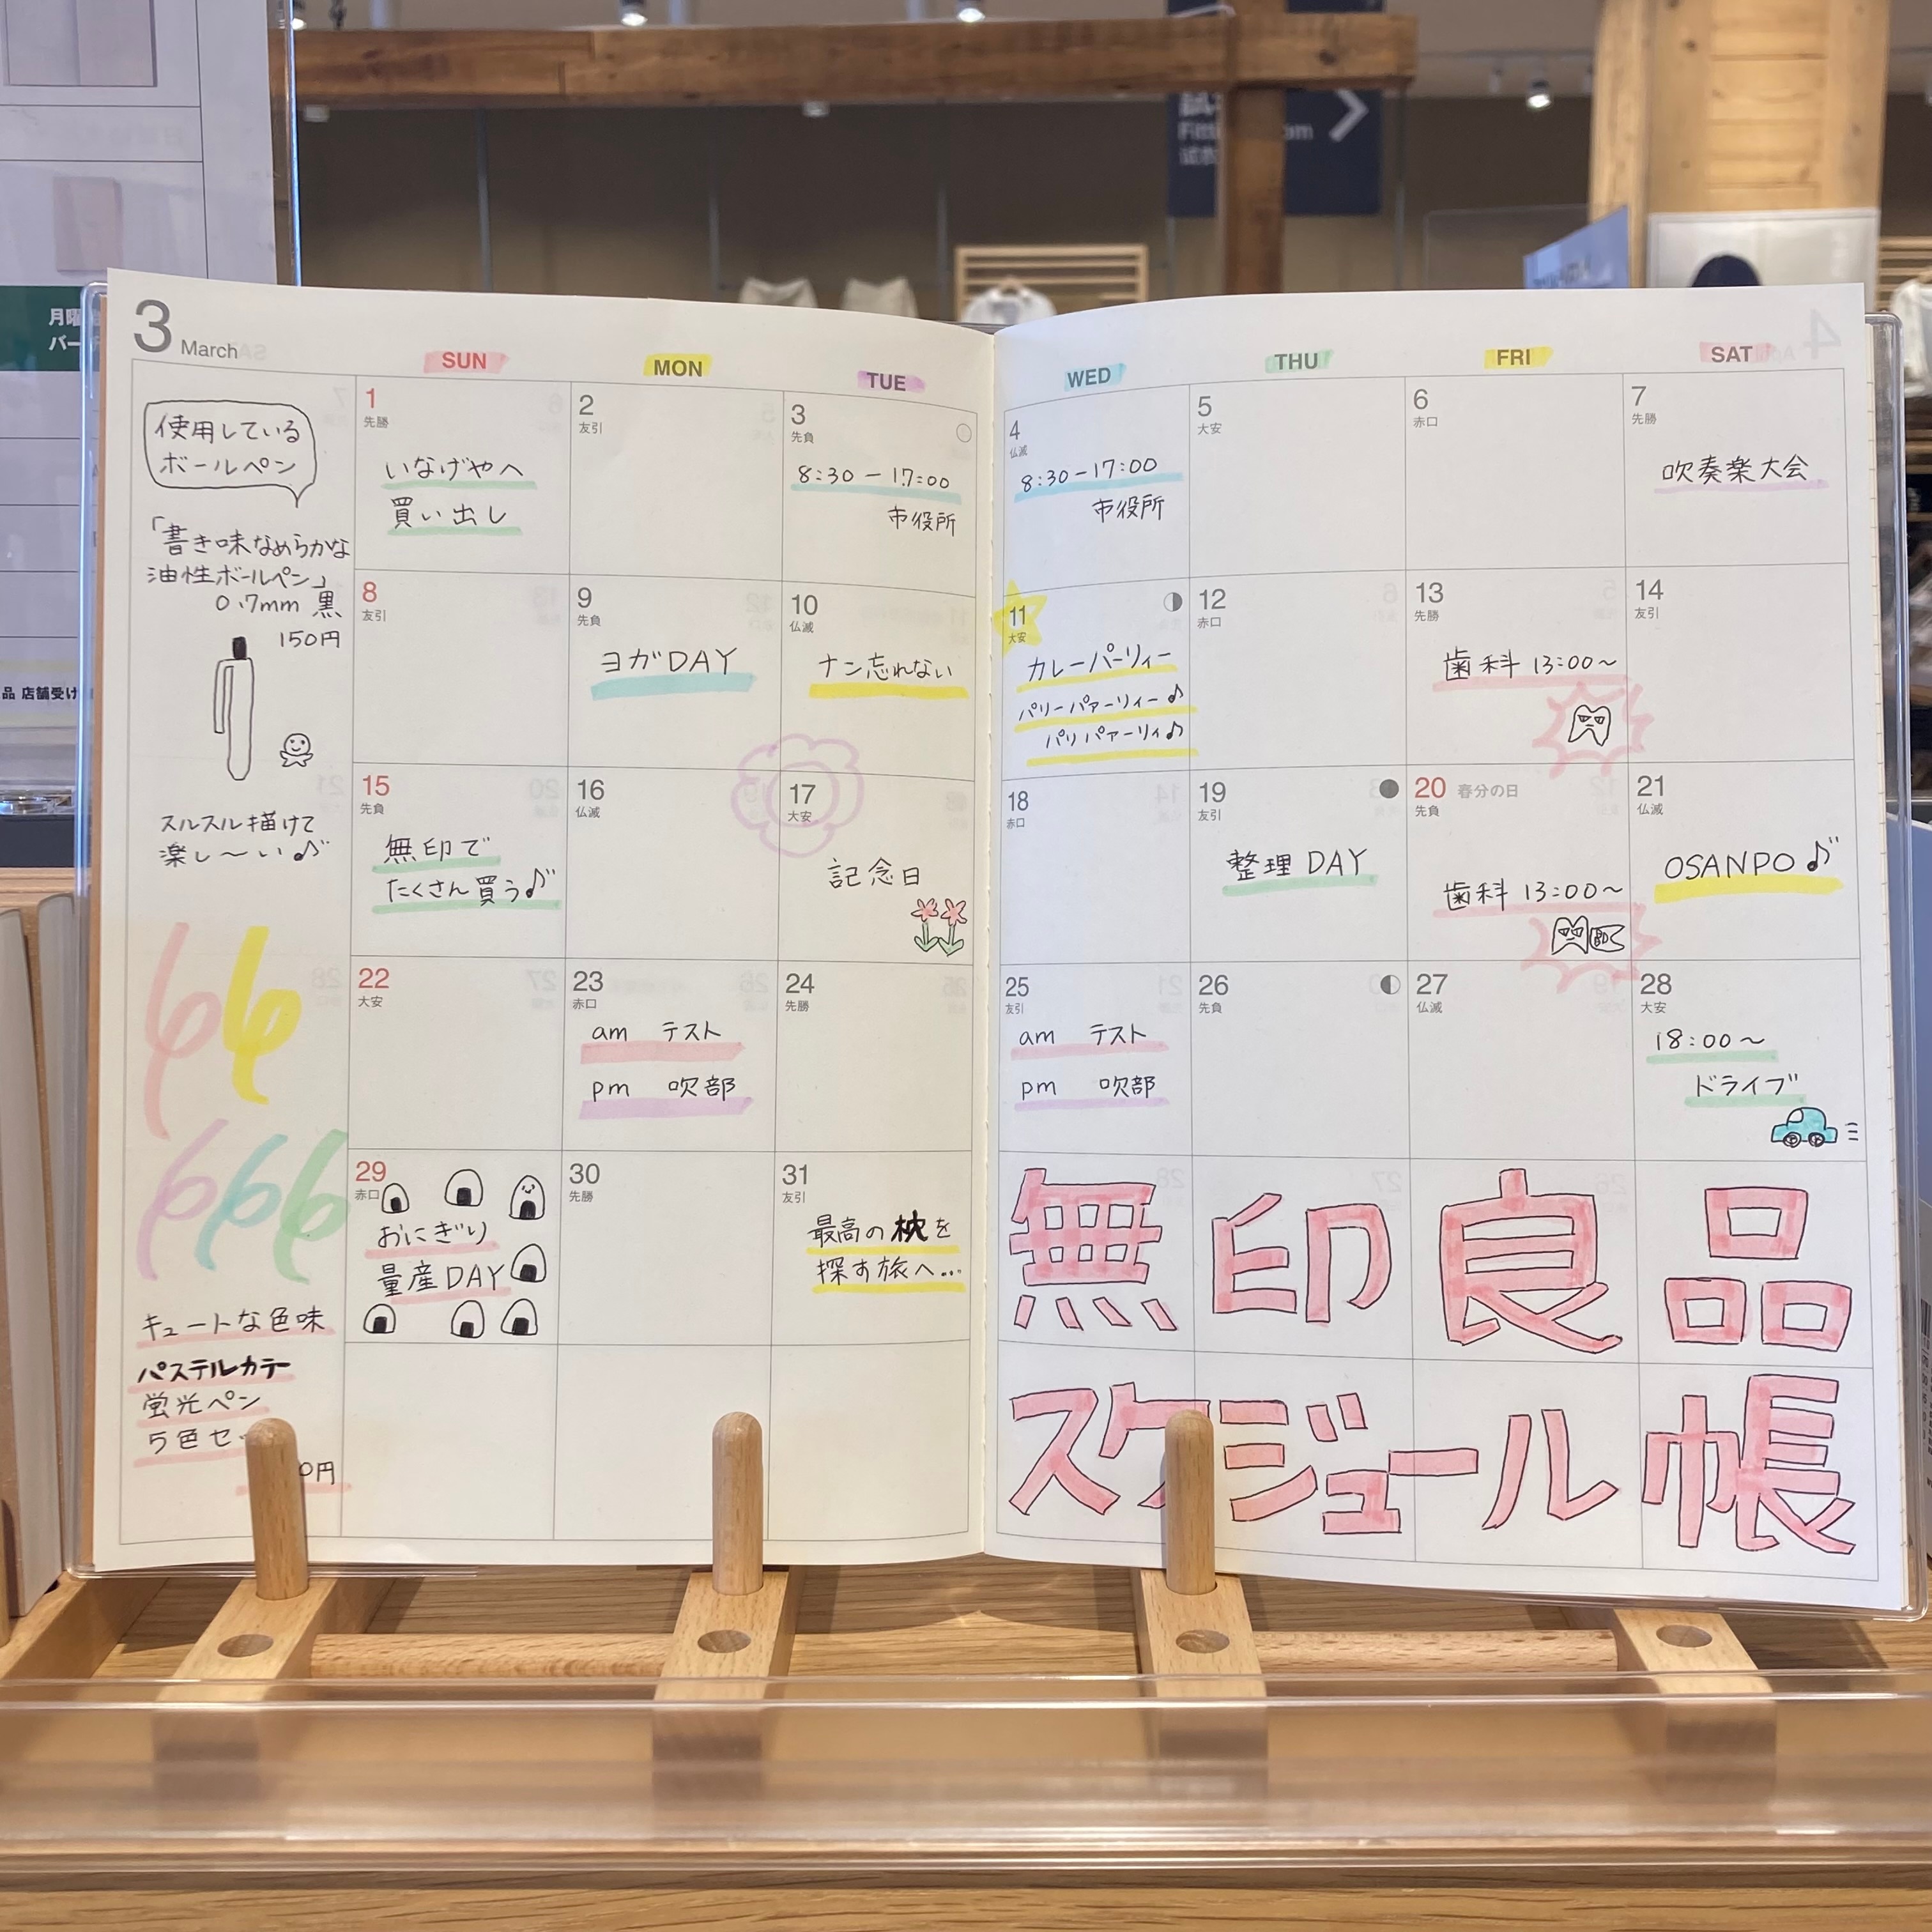 Fitti
月曜
バー
品 店舗受け
3 March
SUN
MON
TUE
WED
THU
FRI
SAT
使用している
ボールペン
「書き味なめらかな
油性ボールペン」
0.7mm 黒
150円
スルスル描けて
楽し〜い♪
キュートな色味
パステルカラー
蛍光ペン
5色セ
0円
1
先勝
いなげやへ
買い出し
2
友引
3
先負
8:30-17:00
市役所
4
仏滅
8:30-17:00
市役所
5
大安
6
赤口
7
先勝
吹奏楽大会
8
友引
9
先負
ヨガDAY
10
仏滅
ナン忘れない
11
大安
カレーパーリィー
パリーパァーリィー♪
パリパァーリィ♪
12
赤口
13
先勝
歯科 13:00~
14
友引
15
先負
無印で
たくさん買う♪
16
仏滅
17
大安
記念日
18
赤口
19
友引
整理DAY
20 春分の日
先負
歯科 13:00~
21
仏滅
OSANPO♪
22
大安
23
赤口
am テスト
pm 吹部
24
先勝
25
友引
am テスト
pm 吹部
26
先負
27
仏滅
28
大安
18:00~
ドライブ
29
赤口
おにぎり
量産DAY
30
先勝
31
友引
最高の枕を
探す旅へ...
無印良品
スケジュール帳